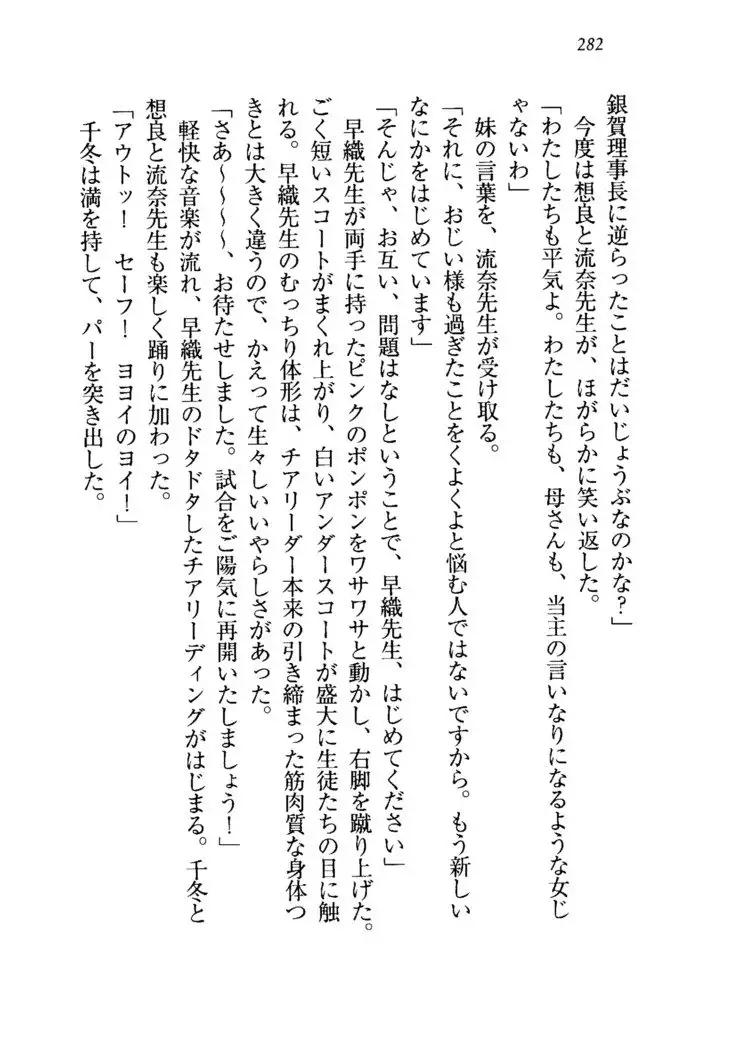 282
銀賀理事長に逆らったことはだいじょうぶなのかな？」
　今度は想良と流奈先生が、ほがらかに笑い返した。
「わたしたちも平気よ。わたしたちも、母さんも、当主の言いなりになるような女じ
ゃないわ」
　妹の言葉を、流奈先生が受け取る。
「それに、おじい様も過ぎたことをくよくよと悩む人ではないですから。もう新しい
なにかをはじめています」
「そんじゃ、お互い、問題はなしということで、早織先生、はじめてください」
　早織先生が両手に持ったピンクのポンポンをワサワサと動かし、右脚を蹴り上げた。
ごく短いスコートがまくれ上がり、白いアンダースコートが盛大に生徒たちの目に触
れる。早織先生のむっちり体形は、チアリーダー本来の引き締まった筋肉質な身体つ
きとは大きく違うので、かえって生々しいいやらしさがあった。
「さあ～～～～、お待たせしました。試合をご陽気に再開いたしましょう！」
　軽快な音楽が流れ、早織先生のドタドタしたチアリーディングがはじまる。千冬と
想良と流奈先生も楽しく踊りに加わった。
「アウトッ！　セーフ！　ヨヨイのヨイ！」
　千冬は満を持して、パーを突き出した。